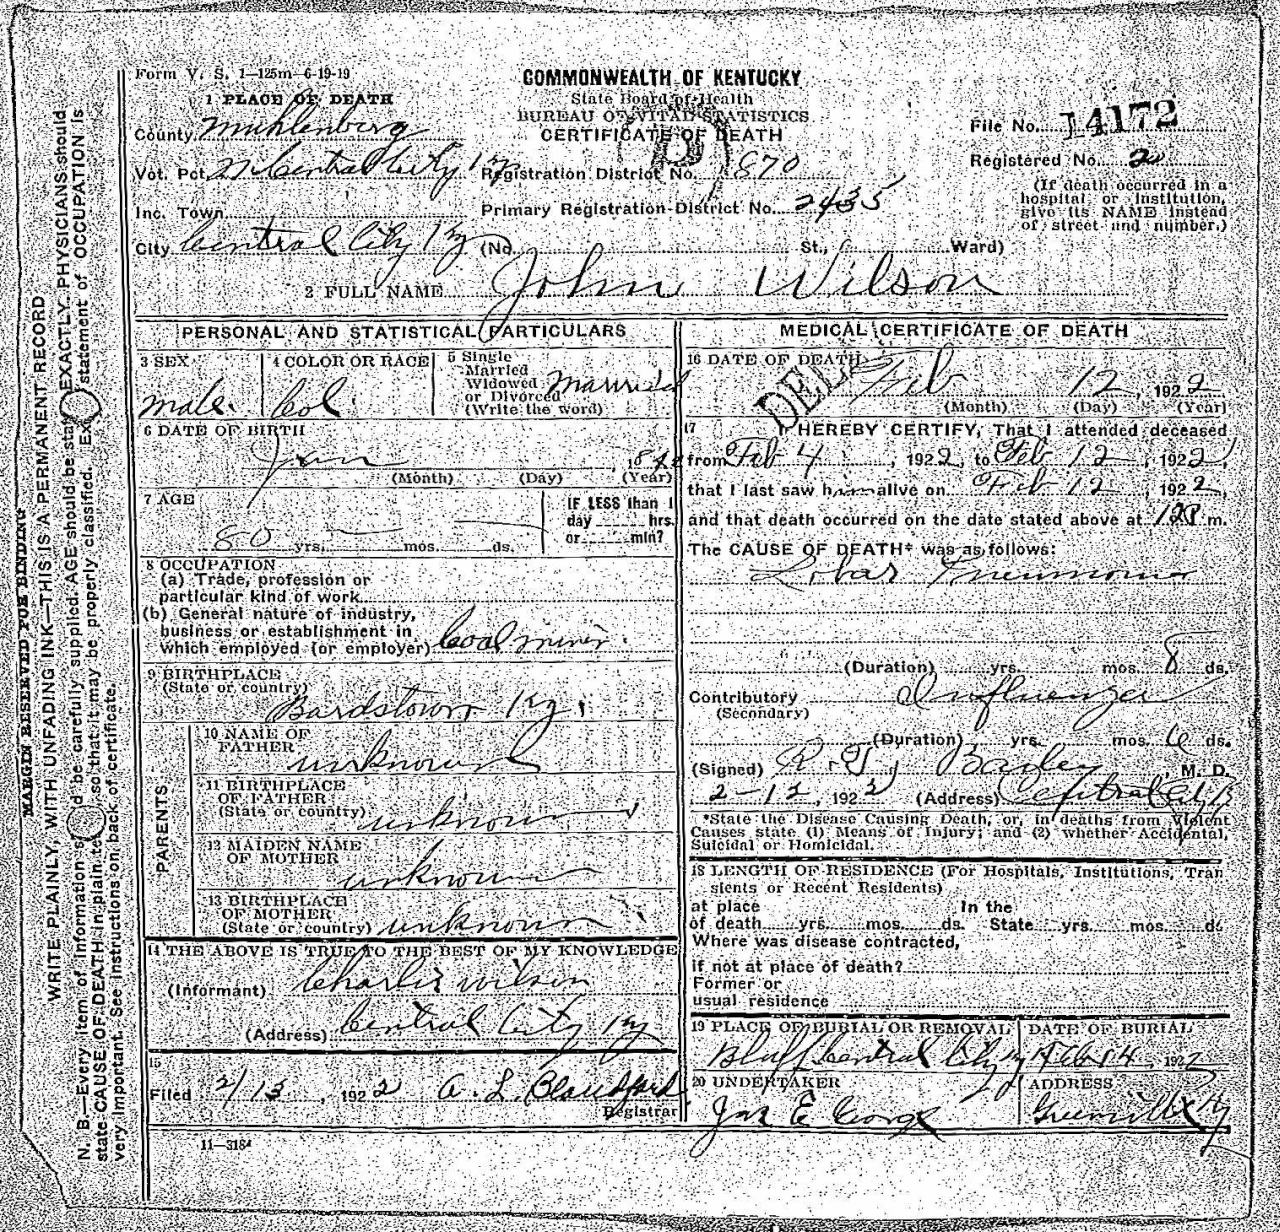 Form V. S. 1—125m—6-19-19
COMMONWEALTH OF KENTUCKY
State Board of Health
BUREAU OF VITAL STATISTICS
CERTIFICATE OF DEATH
1 PLACE OF DEATH
County Muhlenberg
Vot. Pct. N Central City Ky
Inc. Town
City Central City Ky (No. St., Ward)
Registration District No. 870
Primary Registration District No. 2435
File No. 14172
Registered No. 20
(If death occurred in a
hospital or institution,
give its NAME instead
of street and number.)
2 FULL NAME John Wilson
PERSONAL AND STATISTICAL PARTICULARS
3 SEX
male
4 COLOR OR RACE
Col
5 Single
Married
Widowed
or Divorced
(Write the word)
Married
6 DATE OF BIRTH
Jan 1842
(Month) (Day) (Year)
7 AGE
80 yrs. mos. ds.
IF LESS than 1
day hrs.
or min?
8 OCCUPATION
(a) Trade, profession or
particular kind of work
(b) General nature of industry,
business or establishment in
which employed (or employer) Coal miner
9 BIRTHPLACE
(State or country)
Bardstown Ky.
PARENTS
10 NAME OF
FATHER
unknown
11 BIRTHPLACE
OF FATHER
(State or country) unknown
12 MAIDEN NAME
OF MOTHER
unknown
13 BIRTHPLACE
OF MOTHER
(State or country) unknown
14 THE ABOVE IS TRUE TO THE BEST OF MY KNOWLEDGE
(Informant) Charlie Wilson
(Address) Central City Ky
15
Filed 2/13, 1922 A. L. Blandford
Registrar
11—3184
MEDICAL CERTIFICATE OF DEATH
16 DATE OF DEATH
Feb 12, 1922
(Month) (Day) (Year)
17 I HEREBY CERTIFY, That I attended deceased
from Feb 4, 1922, to Feb 12, 1922,
that I last saw him alive on Feb 12, 1922,
and that death occurred on the date stated above at m.
The CAUSE OF DEATH* was as follows:
Lobar Pneumonia
(Duration) yrs. mos. 8 ds.
Contributory Influenza
(Secondary)
(Duration) yrs. mos. ds.
(Signed) R. T. Bagley, M. D.
2-12, 1922 (Address) Central City
*State the Disease Causing Death, or, in deaths from Violent
Causes state (1) Means of Injury; and (2) whether Accidental,
Suicidal or Homicidal.
18 LENGTH OF RESIDENCE (For Hospitals, Institutions, Tran
sients or Recent Residents)
at place In the
of death yrs. mos. ds. State yrs. mos. ds
Where was disease contracted,
if not at place of death?
Former or
usual residence
19 PLACE OF BURIAL OR REMOVAL
Bluff Central City Ky
DATE OF BURIAL
Feb 14, 1922
20 UNDERTAKER
Jas E George
ADDRESS
Greenville Ky
MARGIN RESERVED FOR BINDING
WRITE PLAINLY, WITH UNFADING INK—THIS IS A PERMANENT RECORD
N. B.—Every item of information should be carefully supplied. AGE should be stated EXACTLY. PHYSICIANS should
state CAUSE OF DEATH in plain terms, so that it may be properly classified. Exact statement of OCCUPATION is
very important. See instructions on back of certificate.